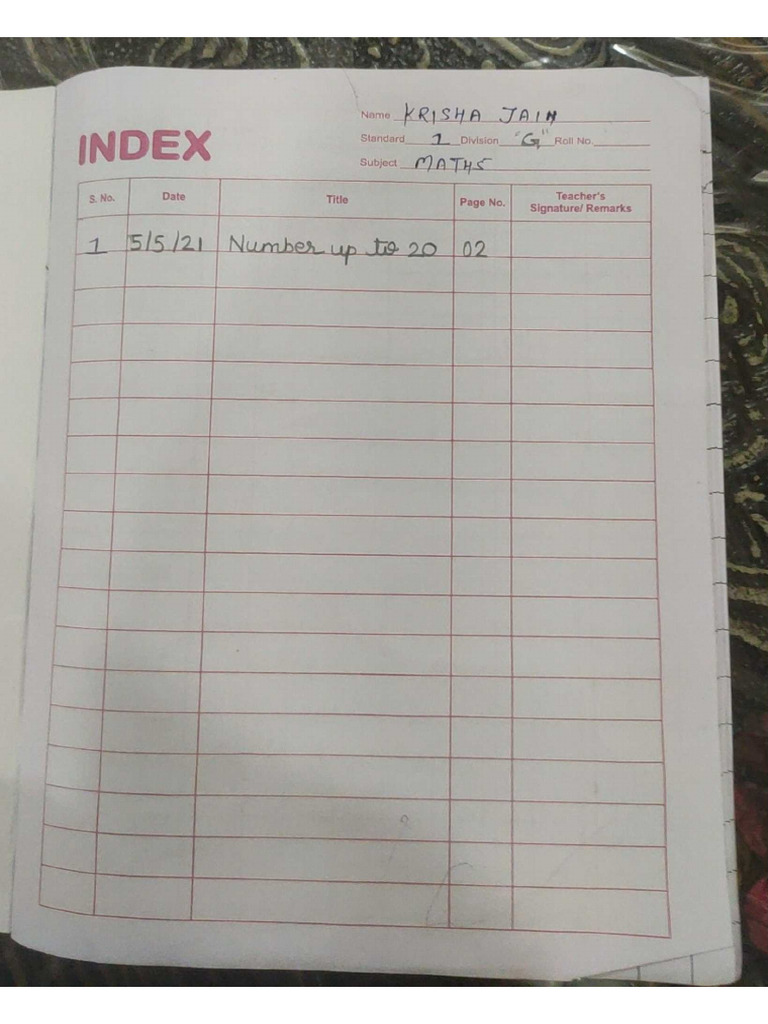 INDEX
Name KRISHA JAIN
Standard 1 Division "G" Roll No.
Subject MATHS
S. No. Date Title Page No. Teacher's Signature/ Remarks
1 5/5/21 Number up to 20 02